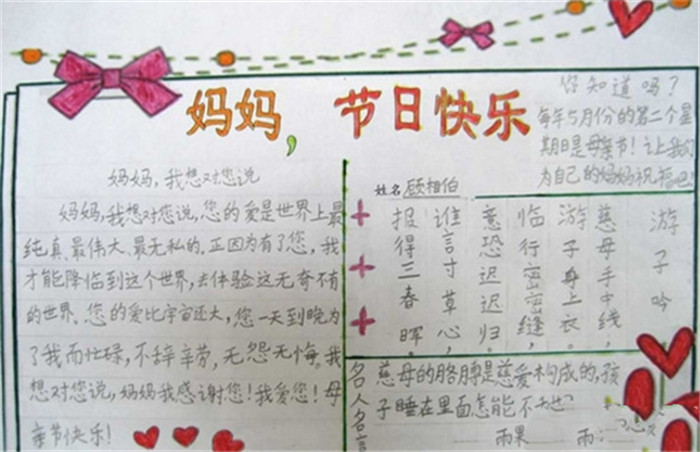 妈妈，节日快乐
你知道吗？
每年5月份的第二个星
期日是母亲节！让我们
为自己的妈妈祝福吧！
妈妈，我想对您说
妈妈，我想对您说，您的爱是世界上最
纯真、最伟大、最无私的.正因为有了您，我
才能降临到这个世界，去体验这无奇不有
的世界.您的爱比宇宙还大，您一天到晚为
了我而忙碌，不辞辛劳，无怨无悔。我
想对您说，妈妈我感谢您！我爱您！母
亲节快乐！
姓名 顾相伯
游子吟
慈母手中线，
游子身上衣。
临行密密缝，
意恐迟迟归。
谁言寸草心，
报得三春晖。
名人名言
慈母的胳膊是慈爱构成的，孩
子睡在里面怎能不
雨果